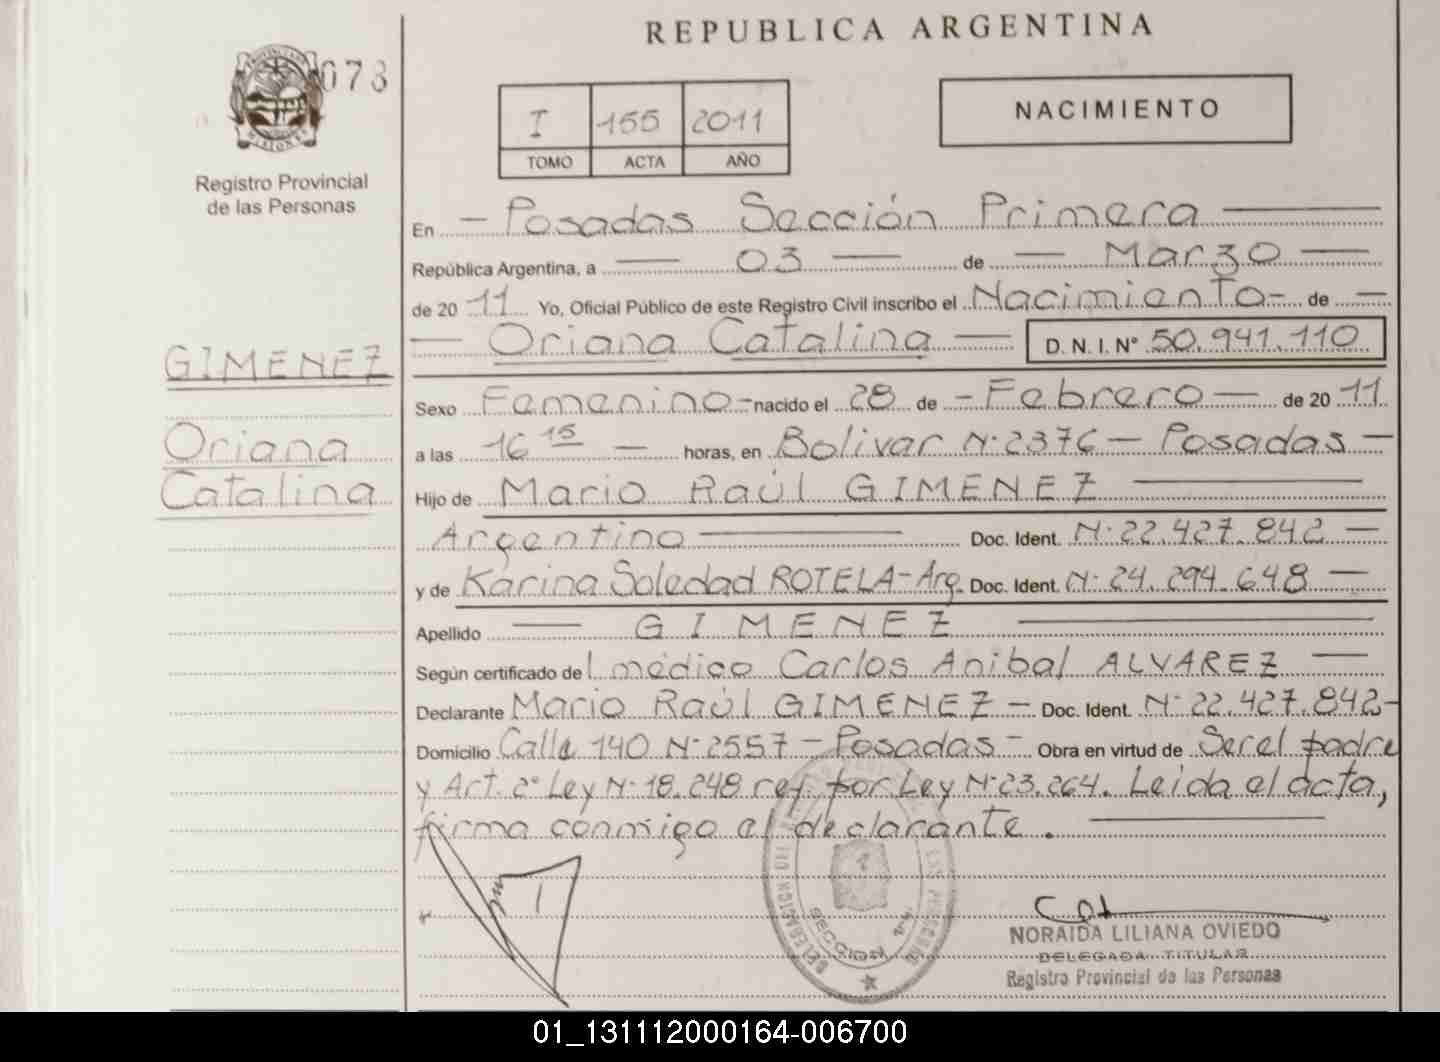 REPUBLICA ARGENTINA
073
Registro Provincial
de las Personas
I 155 2011
TOMO ACTA AÑO
NACIMIENTO
En - Posadas Sección Primera
República Argentina, a 03 de - Marzo
de 2011 Yo, Oficial Público de este Registro Civil inscribo el Nacimiento- de -
Oriana Catalina D. N. I. N° 50.941.110
GIMENEZ
Oriana
Catalina
Sexo Femenino- nacido el 28 de - Febrero - de 2011
a las 16 15 - horas, en Bolivar N° 2376 - Posadas -
Hijo de Mario Raúl GIMENEZ
Argentino Doc. Ident. N° 22.427.842 -
y de Karina Soledad ROTELA-Arg. Doc. Ident. N° 24.294.648 -
Apellido GIMENEZ
Según certificado del médico Carlos Anibal ALVAREZ
Declarante Mario Raúl GIMENEZ - Doc. Ident. N° 22.427.842-
Domicilio Calle 140 N° 2557 - Posadas - Obra en virtud de Ser el padre
y Art. 2° Ley N° 18.248 ref. por Ley N° 23.264. Leida el acta,
firma conmigo el declarante.
NORAIDA LILIANA OVIEDO
DELEGADA TITULAR
Registro Provincial de las Personas
SECCION 1ª
01_131112000164-006700